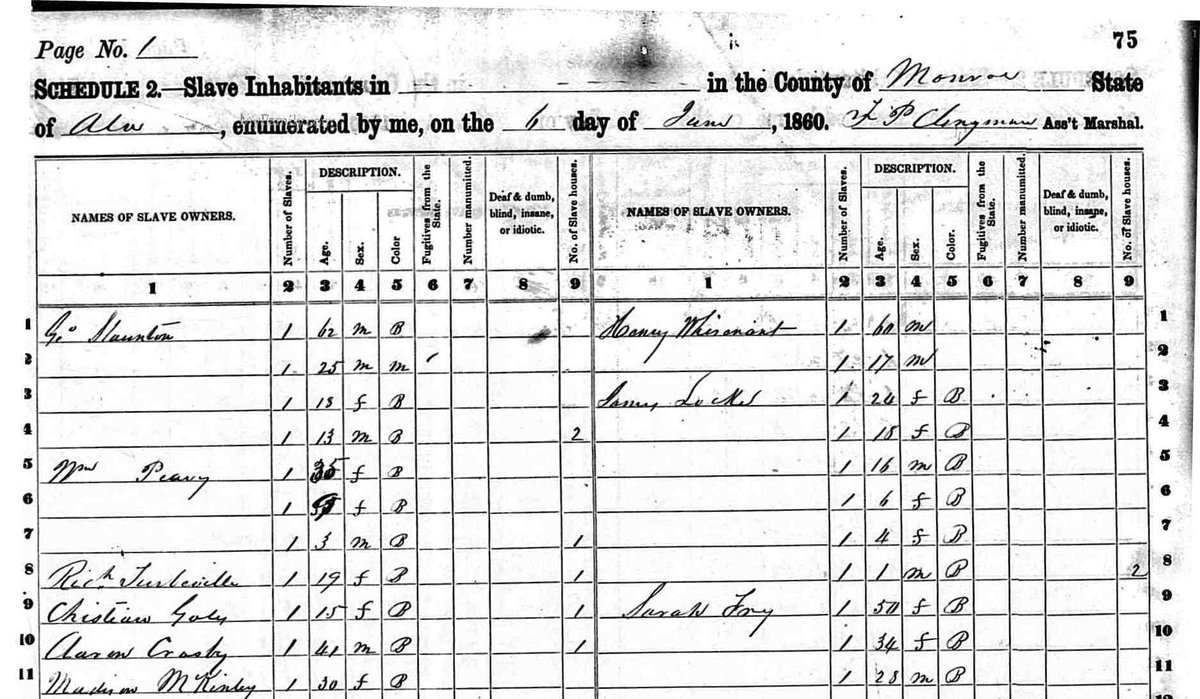 75
Page No. 1
SCHEDULE 2.—Slave Inhabitants in in the County of Monroe State
of Ala, enumerated by me, on the 6 day of June, 1860. F P Clingman Ass't Marshal.
NAMES OF SLAVE OWNERS. Number of Slaves. DESCRIPTION. Age. Sex. Color Fugitives from the State. Number manumitted. Deaf & dumb, blind, insane, or idiotic. No. of Slave houses. NAMES OF SLAVE OWNERS. Number of Slaves. DESCRIPTION. Age. Sex. Color. Fugitives from the State. Number manumitted. Deaf & dumb, blind, insane, or idiotic. No. of Slave houses.
1 2 3 4 5 6 7 8 9 1 2 3 4 5 6 7 8 9
1 Geo Staunton 1 62 m B Henry Whisenant 1 60 m 1
2 1 25 m m 1 17 m 2
3 1 18 f B James Locke 1 24 f B 3
4 1 13 m B 2 1 18 f B 4
5 Wm Peavy 1 35 f B 1 16 m B 5
6 1 f B 1 6 f B 6
7 1 3 m B 1 1 4 f B 7
8 Rich Turbeville 1 19 f B 1 1 1 m B 2 8
9 Chistian 1 15 f B 1 Sarah Fry 1 50 f B 9
10 Aaron Crosby 1 41 m B 1 1 34 f B 10
11 Madison McKinley 1 30 f B 1 28 m B 11